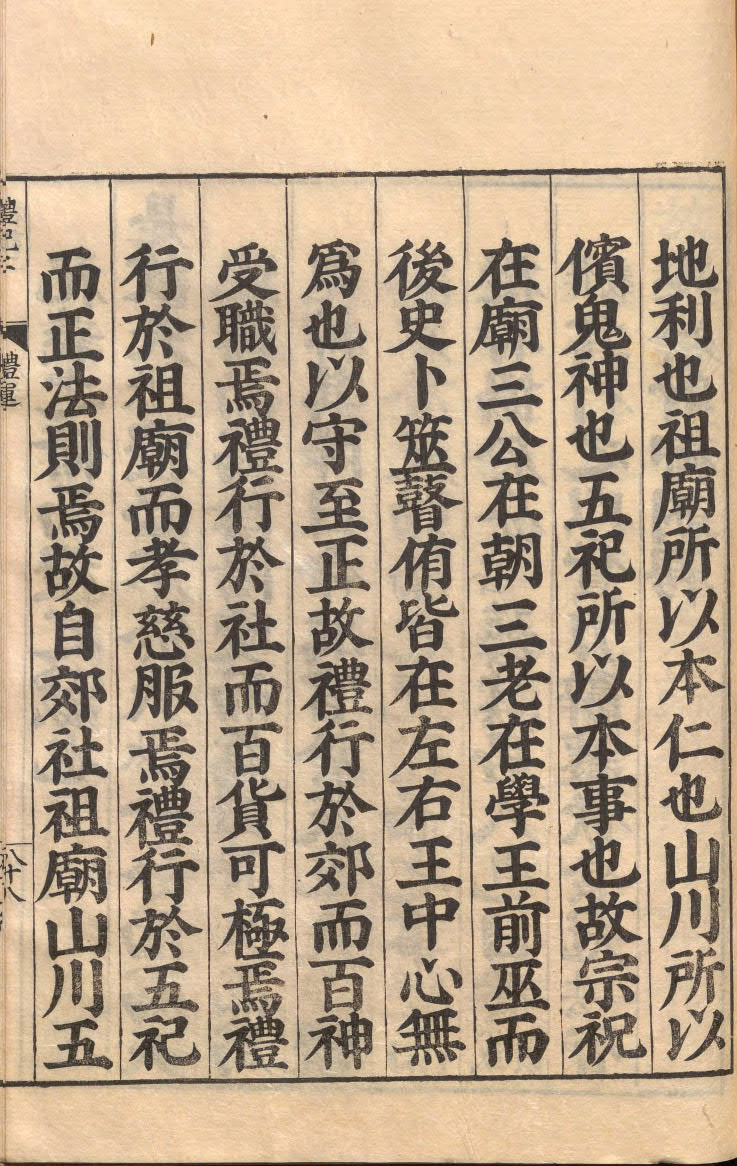 地利也祖廟所以本仁也山川所以
儐鬼神也五祀所以本事也故宗祝
在廟三公在朝三老在學王前巫而
後史卜筮瞽侑皆在左右王中心無
爲也以守至正故禮行於郊而百神
受職焉禮行於社而百貨可極焉禮
行於祖廟而孝慈服焉禮行於五祀
而正法則焉故自郊社祖廟山川五
禮運
八十八